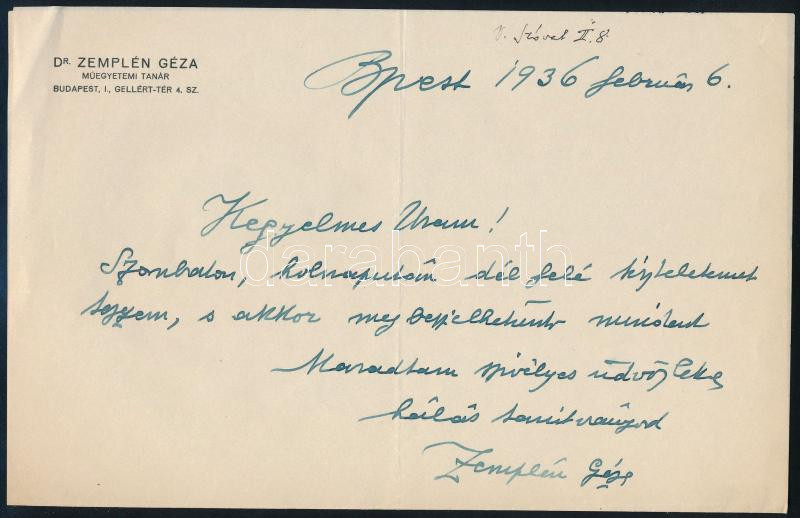 V. szóval II. 8.
DR. ZEMPLÉN GÉZA
MŰEGYETEMI TANÁR
BUDAPEST, I., GELLÉRT-TÉR 4. SZ.
Bpest 1936 február 6.
Kegyelmes Uram!
darabanth
Szombaton, holnapután dél felé tiszteletemet
teszem, s akkor megbeszélhetünk mindent
Maradtam szivélyes üdvözlettel
hálás tanitványod
Zemplén Géza